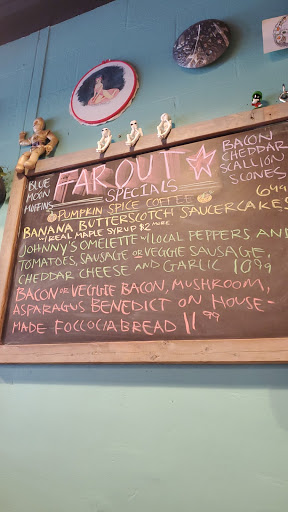 BLUE
MOON
MUFFINS
FAR OUT
SPECIALS
BACON
CHEDDAR
SCALLION
SCONES
PUMPKIN SPICE COFFEE
BANANA BUTTERSCOTCH SAUCERCAKES 6.99
REAL MAPLE SYRUP $2 MORE
JOHNNY'S OMELETTE W/ LOCAL PEPPERS AND
TOMATOES, SAUSAGE OR VEGGIE SAUSAGE,
CHEDDAR CHEESE AND GARLIC 10.99
BACON OR VEGGIE BACON, MUSHROOM,
ASPARAGUS BENEDICT ON HOUSE-
MADE FOCCOCIA BREAD 11.99